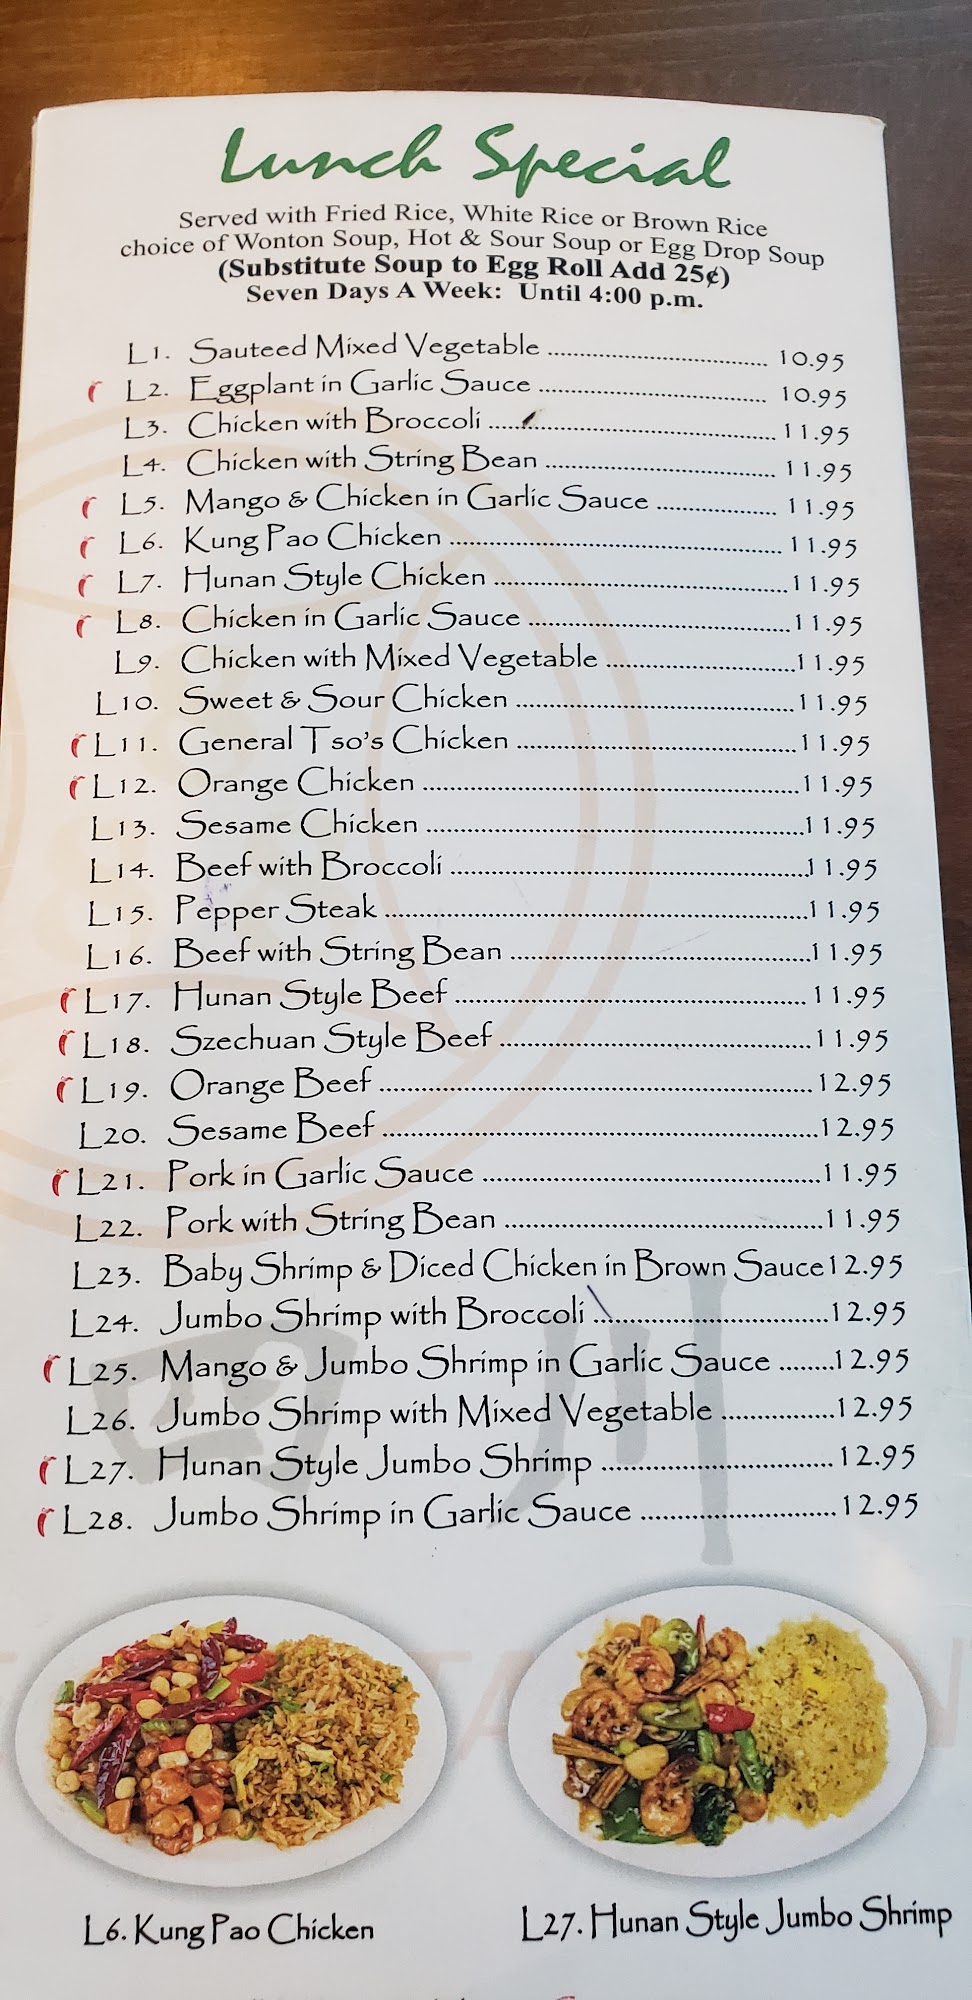 Lunch Special
Served with Fried Rice, White Rice or Brown Rice
choice of Wonton Soup, Hot & Sour Soup or Egg Drop Soup
(Substitute Soup to Egg Roll Add 25¢)
Seven Days A Week: Until 4:00 p.m.
L1. Sauteed Mixed Vegetable 10.95
L2. Eggplant in Garlic Sauce 10.95
L3. Chicken with Broccoli 11.95
L4. Chicken with String Bean 11.95
L5. Mango & Chicken in Garlic Sauce 11.95
L6. Kung Pao Chicken 11.95
L7. Hunan Style Chicken 11.95
L8. Chicken in Garlic Sauce 11.95
L9. Chicken with Mixed Vegetable 11.95
L10. Sweet & Sour Chicken 11.95
L11. General Tso's Chicken 11.95
L12. Orange Chicken 11.95
L13. Sesame Chicken 11.95
L14. Beef with Broccoli 11.95
L15. Pepper Steak 11.95
L16. Beef with String Bean 11.95
L17. Hunan Style Beef 11.95
L18. Szechuan Style Beef 11.95
L19. Orange Beef 12.95
L20. Sesame Beef 12.95
L21. Pork in Garlic Sauce 11.95
L22. Pork with String Bean 11.95
L23. Baby Shrimp & Diced Chicken in Brown Sauce 12.95
L24. Jumbo Shrimp with Broccoli 12.95
L25. Mango & Jumbo Shrimp in Garlic Sauce 12.95
L26. Jumbo Shrimp with Mixed Vegetable 12.95
L27. Hunan Style Jumbo Shrimp 12.95
L28. Jumbo Shrimp in Garlic Sauce 12.95
四川
L6. Kung Pao Chicken
L27. Hunan Style Jumbo Shrimp